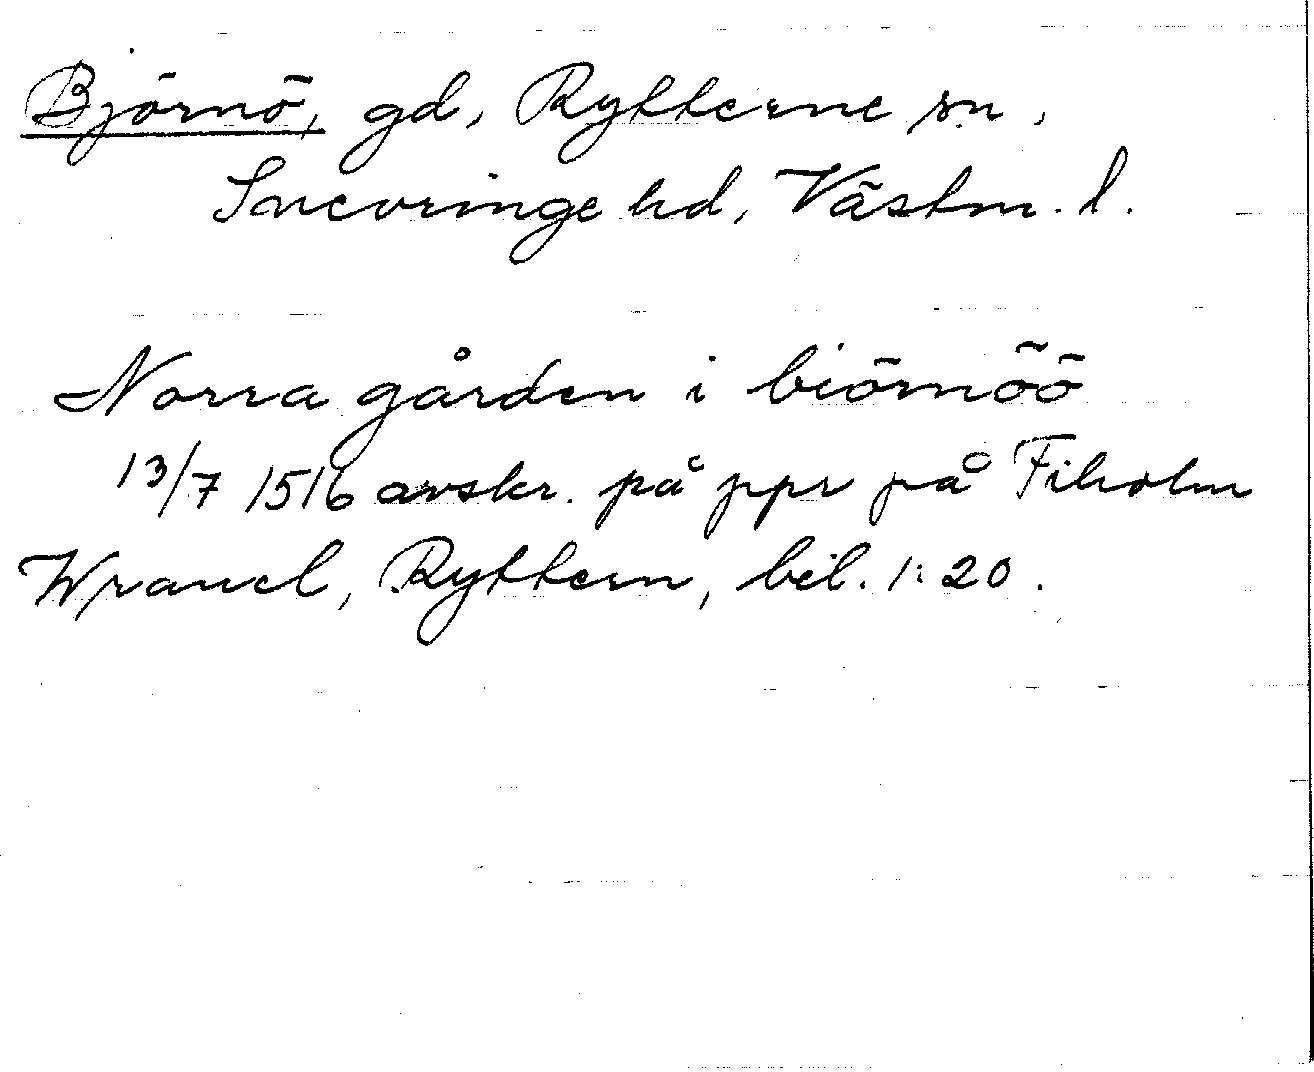 Björnö, gd, Rytterne sn,
Snevringe hd, Västm. l.
Norra gården i biörnöö
13/7 1516 avskr. på ppr på Fiholm
Wranel, Ryttern, bil. 1:20.